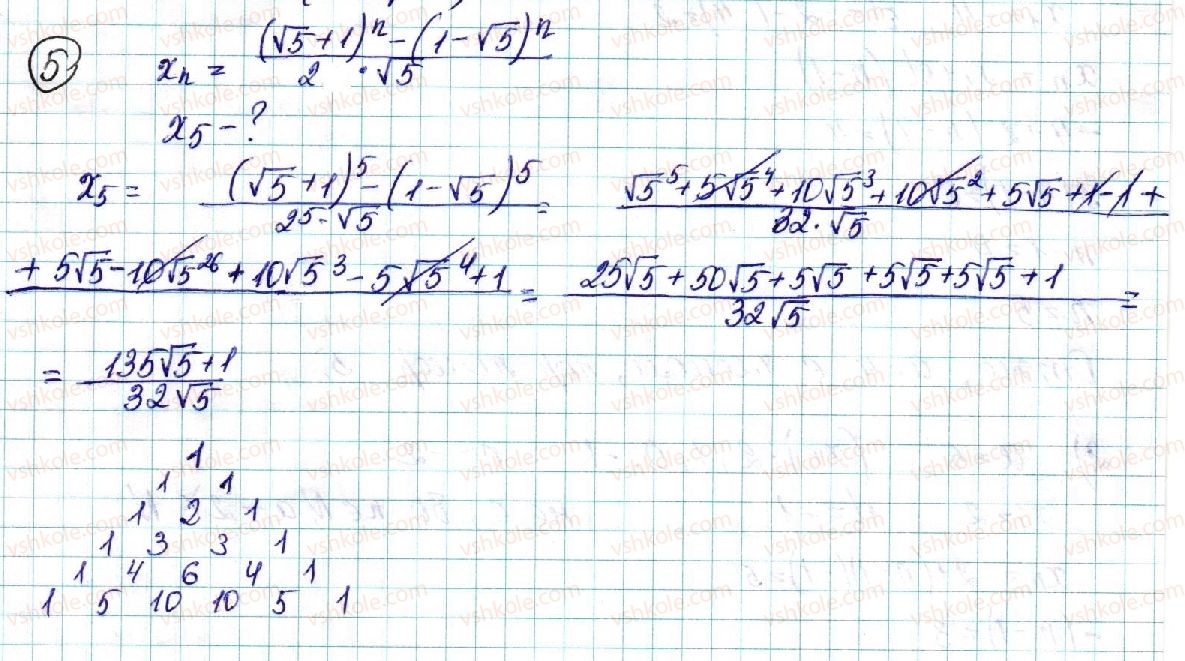 5
xₙ = ((√5+1)ⁿ-(1-√5)ⁿ)/(2 · √5)
x₅ - ?
x₅ = ((√5+1)⁵-(1-√5)⁵)/(2⁵·√5) = (√5⁵+5√5⁴+10√5³+10√5²+5√5+1-1+)/(32·√5)
+5√5-10√5²⁶+10√5³-5√5⁴+1 = (25√5+50√5+5√5+5√5+5√5+1)/(32√5) =
= (135√5+1)/(32√5)
1
1 1
1 2 1
1 3 3 1
1 4 6 4 1
1 5 10 10 5 1
vshkole.com